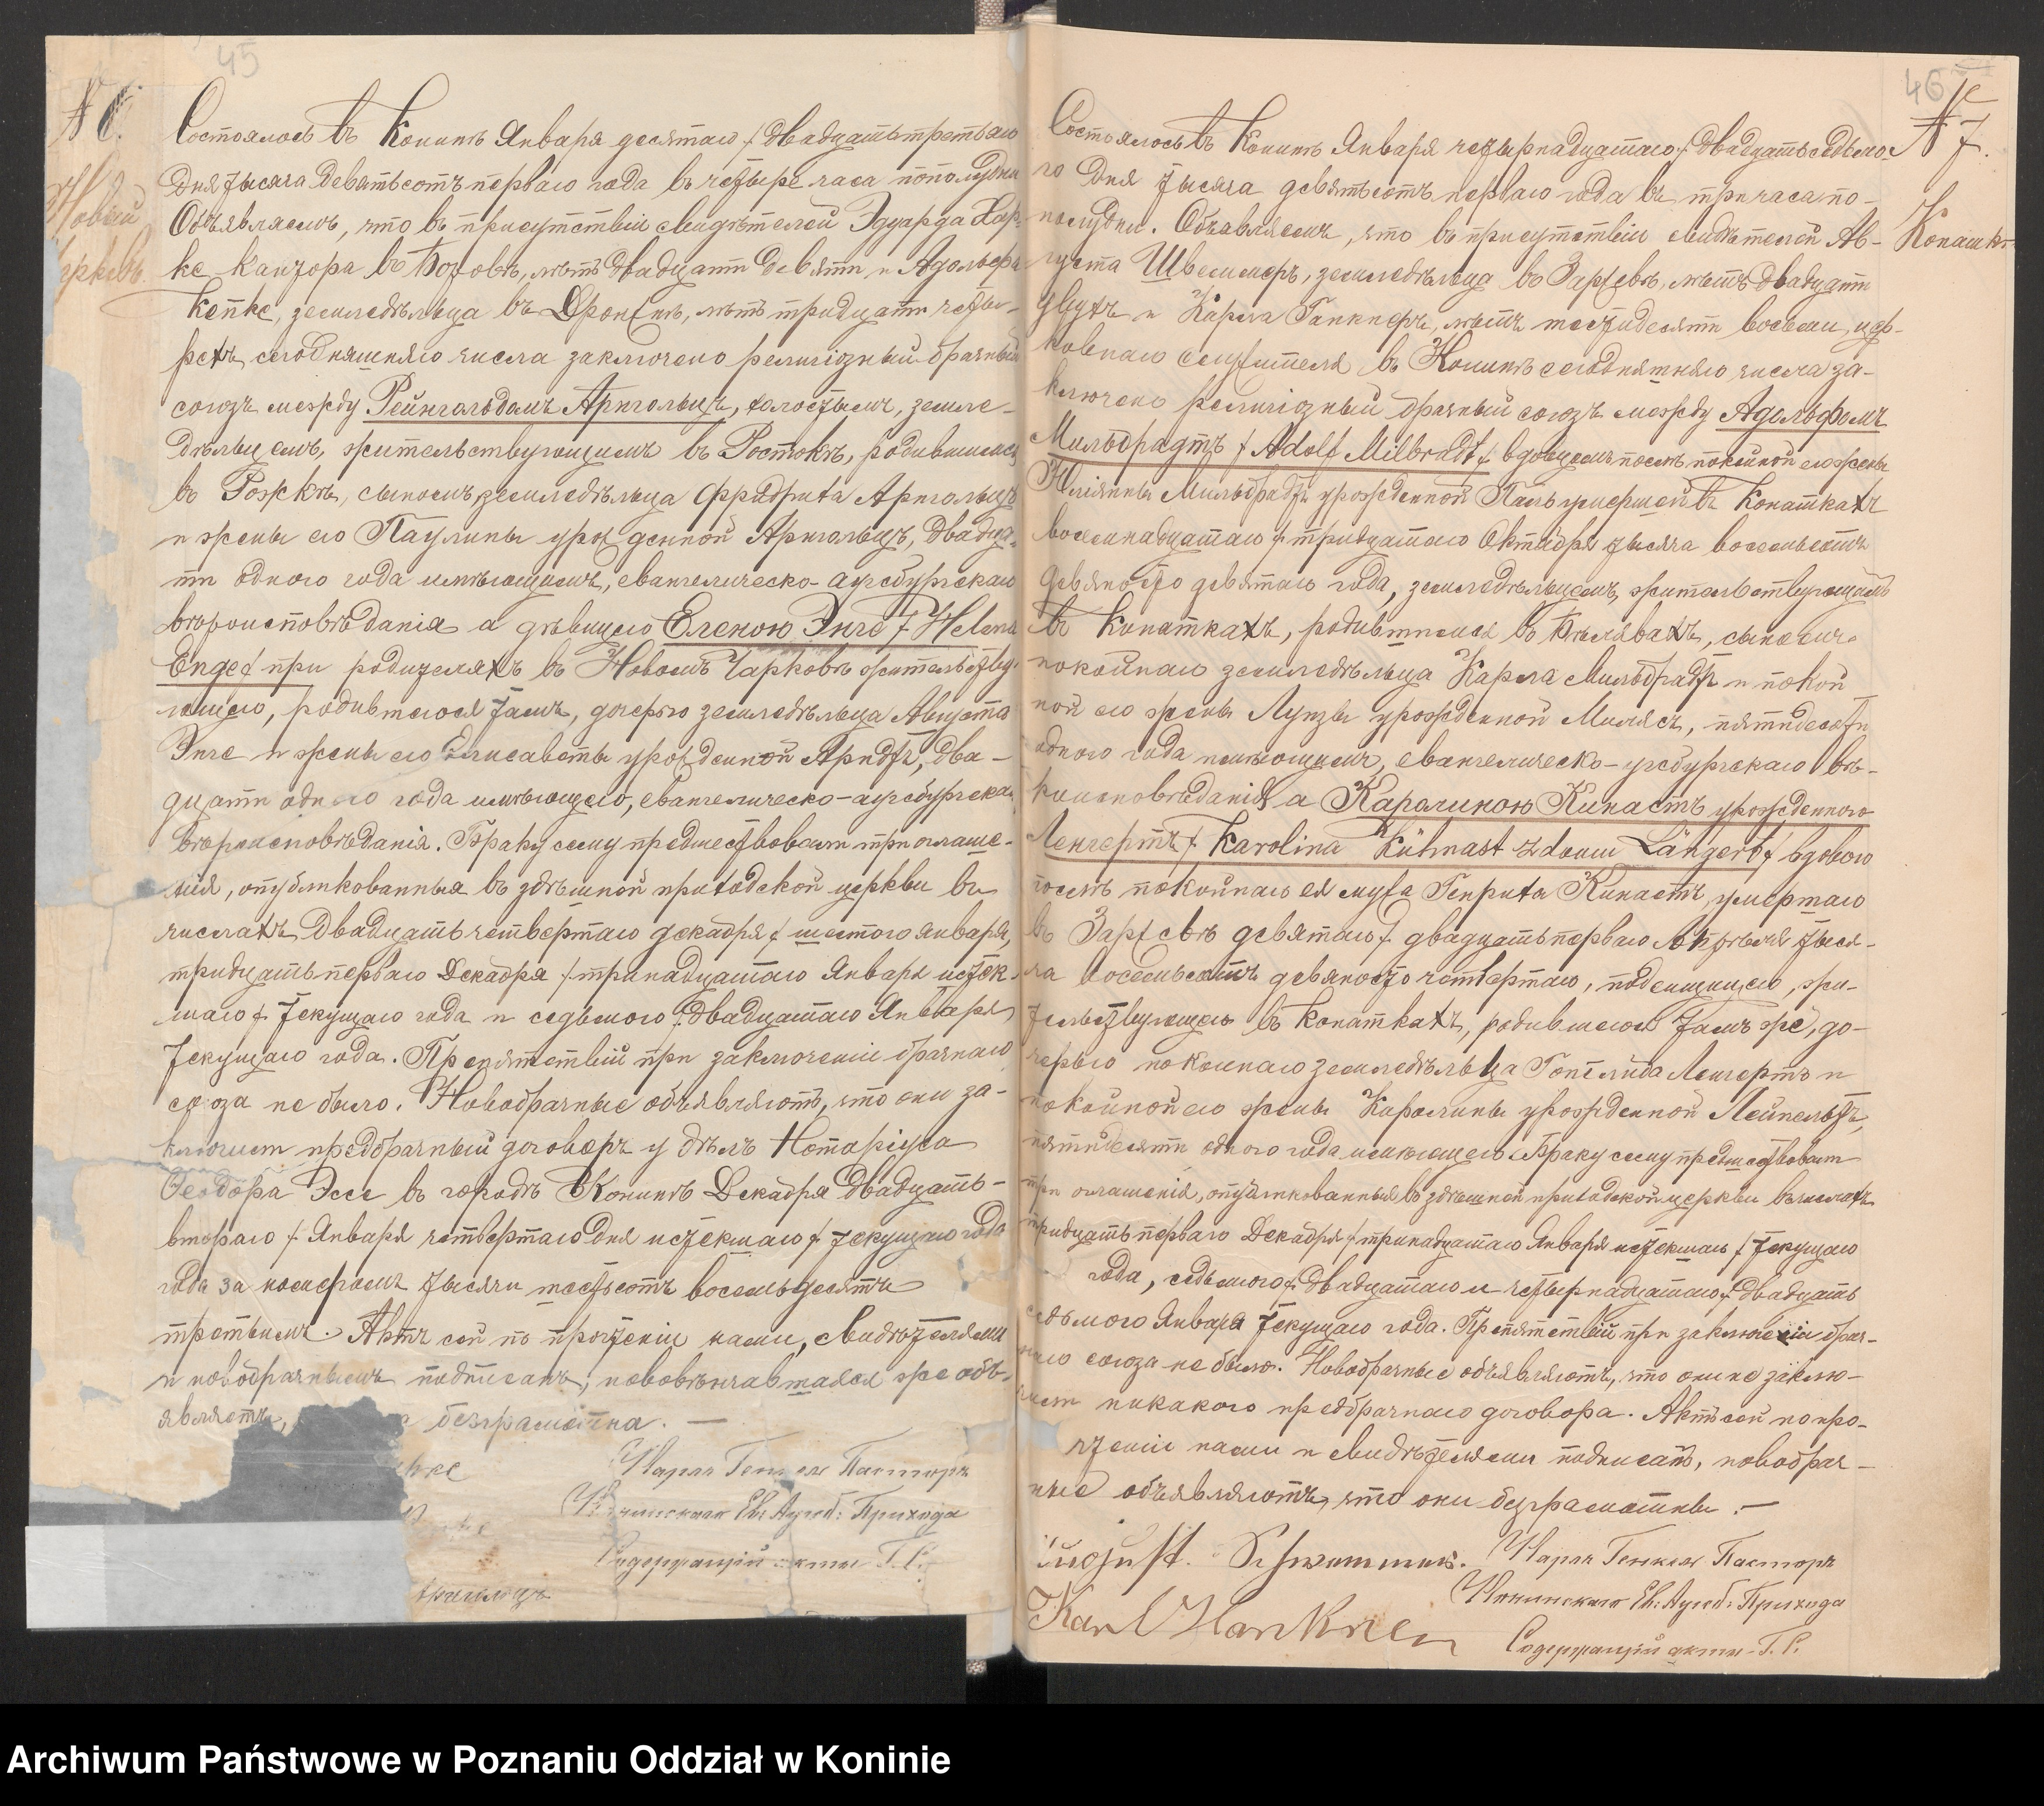 45
№ 6.
Новый
Чарковъ.
Состоялось въ Конинѣ Января десятаго / двадцать третьяго
дня тысяча девятьсотъ перваго года въ четыре часа пополудни
Объявляемъ, что въ присутствіи свидѣтелей Эдуарда Хар-
ке кантора въ лѣтъ двадцати девяти, и Адольфа
Кепке, земледѣльца въ лѣтъ тридцати четы-
рехъ сегодняшняго числа заключено религіозный брачный
союзъ между Рейнгольдомъ Арнгольцъ, холостымъ, земле-
дѣльцемъ, жительствующимъ въ Ростокѣ, родившимся
въ сыномъ земледѣльца Фридриха Арнгольцъ
и жены его Паулины урожденной Арнгольцъ, двадца-
ти одного года имѣющимъ, евангелическо-аугсбургскаго
вѣроисповѣданія а дѣвицею Еленою Энге / Helena
Enge / при родителяхъ въ Новомъ Чарковѣ жительству-
ющею, родившеюся тамъ, дочерью земледѣльца Августа
Энге и жены его Елисаветы урожденной Арндтъ, два-
дцати одного года имѣющею, евангелическо-аугсбургскаго
вѣроисповѣданія. Браку сему предшествовали три оглаше-
нія, опубликованныя въ здѣшней приходской церкви въ
числахъ двадцать четвертаго декабря / шестого января,
тридцать перваго Декабря / тринадцатаго Января истек-
шаго / текущаго года и седьмого / двадцатаго Января
текущаго года. Препятствій при заключеніи брачнаго
союза не было. Новобрачные объявляютъ, что они за-
ключили предбрачный договоръ у дѣлъ Нотаріуса
Ѳеодора Эссе въ городѣ Конинѣ Декабря двадцать-
второго / Января четвертаго дня истекшаго / текущаго года
года за номеромъ тысячи шестьсотъ восемьдесятъ
третьимъ. Актъ сей по прочтеніи нами, свидѣтелями
и новобрачнымъ подписанъ, нововѣнчавшаяся же объ-
являетъ, безграмотна. —
Карлъ Генкель Пасторъ
Конинскаго Ев: Аугсб: Прихода
Содержащій акты Г. С.
Арнгольцъ
46
№ 7.
Конашки
Состоялось въ Конинѣ Января четырнадцатаго / двадцать седьмо-
го дня тысяча девятьсотъ перваго года въ три часа по-
полудни. Объявляемъ, что въ присутствіи свидѣтелей Ав-
густа Швеммеръ, земледѣльца въ Заржевѣ, лѣтъ двадцати
двухъ и Карла Ганкнеръ, лѣтъ шестидесяти восьми, цер-
ковнаго служителя въ Конинѣ сегодняшняго числа за-
ключено религіозный брачный союзъ между Адольфомъ
Мильбрадтъ / Adolf Milbradt / вдовцемъ послѣ покойной его жены
Юліянны Мильбрадтъ урожденной умершей въ Конашкахъ
восемнадцатаго / тридцатаго Октября тысяча восемьсотъ
девяносто девятаго года, земледѣльцемъ, жительствующимъ
въ Конашкахъ, родившимся въ Бѣлявахъ, сыномъ
покойнаго земледѣльца Карла Мильбрадтъ и покой
ной его жены Луизы урожденной пятидесяти
одного года имѣющимъ, евангелическо-аугсбургскаго вѣ-
роисповѣданія а Каролиною Кинастъ урожденною
Ленгертъ / Karolina Kühnast z domu Längert / вдовою
послѣ покойнаго ея мужа Генриха Кинастъ, умершаго
въ Заржевѣ девятаго / двадцать перваго Апрѣля тыся-
ча восемьсотъ девяносто четвертаго, поденщицею, жи-
тельствующею въ Конашкахъ, родившеюся тамъ же, до-
черью покойнаго земледѣльца Готлида Ленгертъ и
покойной его жены Каролины урожденной Лейпельтъ,
пятидесяти одного года имѣющею. Браку сему предшествовали
три оглашенія, опубликованныя въ здѣшней приходской церкви въ числахъ
тридцать перваго Декабря / тринадцатаго Января истекшаго / текущаго
года, седьмого / двадцатаго и четырнадцатаго / двадцать
седьмого Января текущаго года. Препятствій при заключеніи брач-
наго союза не было. Новобрачные объявляютъ, что они не заклю-
чили никакого предбрачнаго договора. Актъ сей по про-
чтеніи нами и свидѣтелями подписанъ, новобрач-
ные объявляютъ, что они безграмотны. —
August Schwemmer. Карлъ Генкель Пасторъ
Конинскаго Ев: Аугсб: Прихода
Karl Hankner Содержащій акты Г. С.
Archiwum Państwowe w Poznaniu Oddział w Koninie